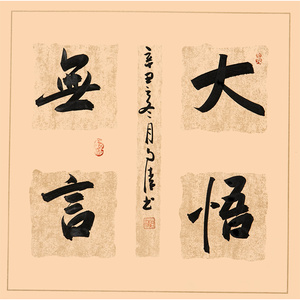 大悟
無言
辛丑冬月书